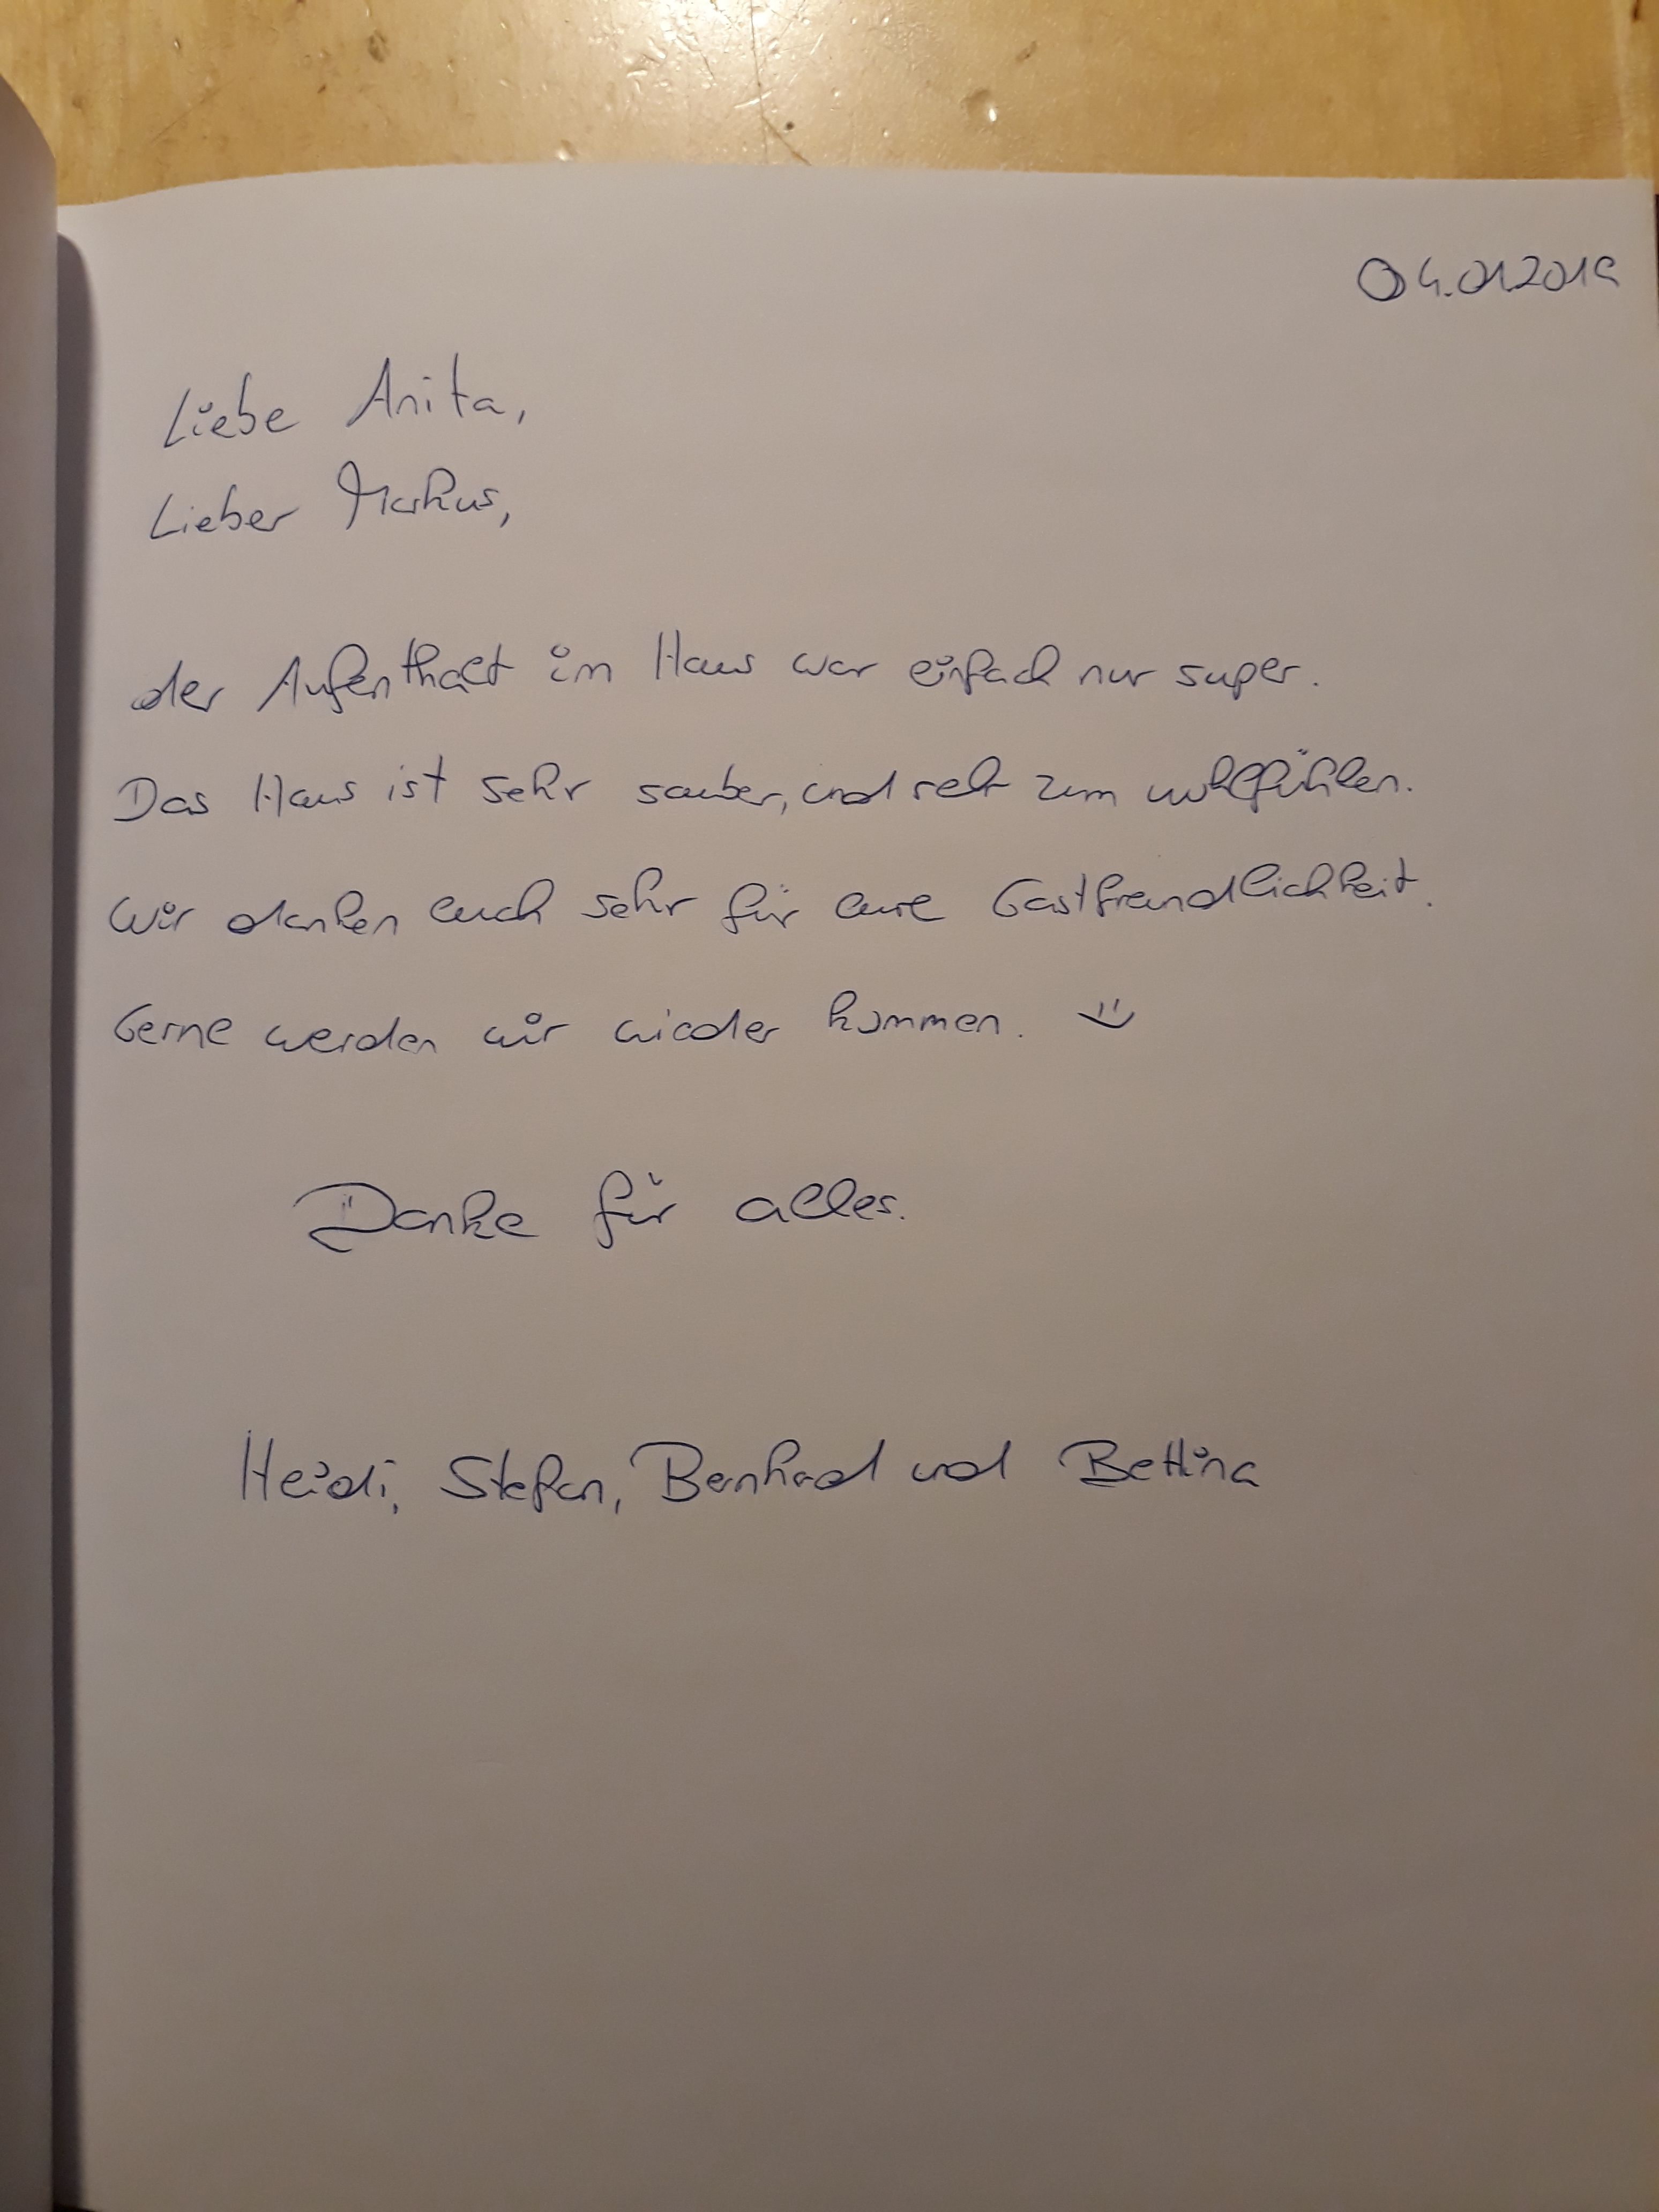 04.01.2019
Liebe Anita,
Lieber Markus,
der Aufenthalt im Haus war einfach nur super.
Das Haus ist sehr sauber, und sehr zum wohlfühlen.
Wir danken euch sehr für eure Gastfreundlichkeit.
Gerne werden wir wieder kommen. :)
Danke für alles.
Heidi, Stefan, Bernhard und Bettina